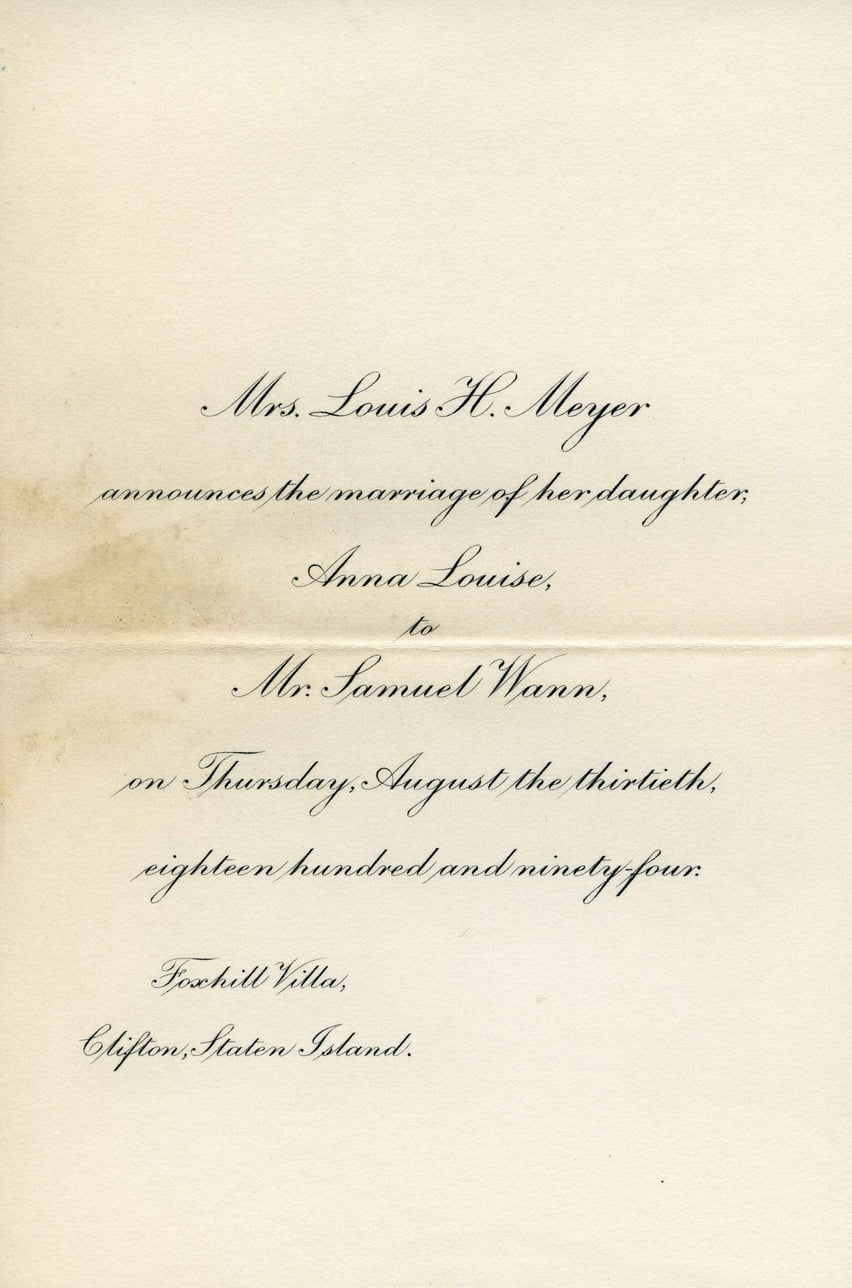 Mrs. Louis H. Meyer
announces the marriage of her daughter,
Anna Louise,
to
Mr. Samuel Wann,
on Thursday, August the thirtieth,
eighteen hundred and ninety-four.
Foxhill Villa,
Clifton, Staten Island.